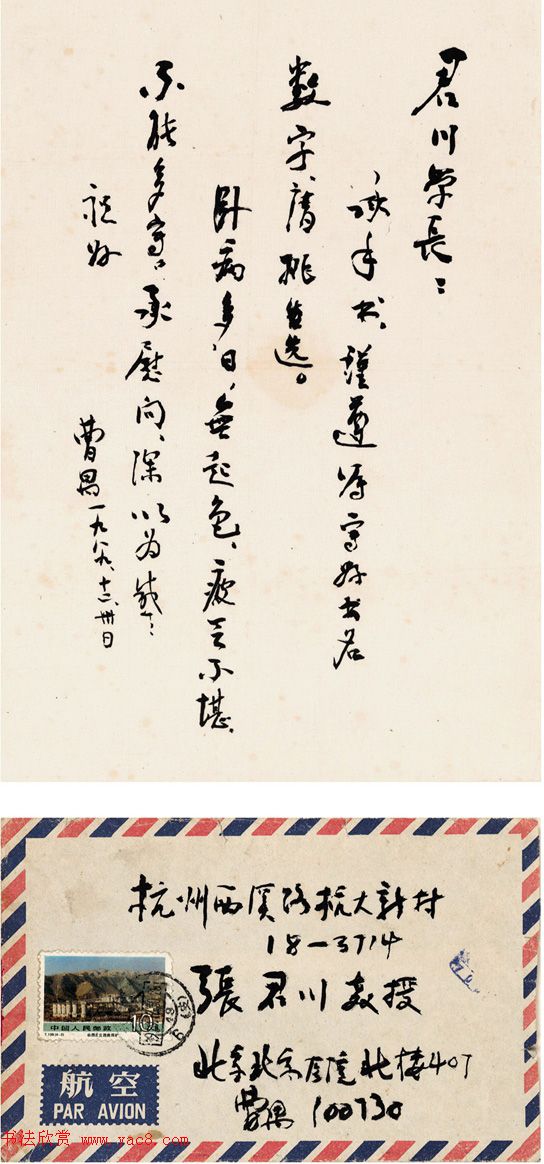 君川学长：
读手书，谨遵嘱写好书名
数字，请挑自选。
卧病多日，无起色，疲乏不堪，
不能多写，承慰问，深以为感：
祝好
曹禺 一九八九、十二、卅日
杭州西溪路杭大新村
18-3714
張君川教授
北京北京医院北楼407
曹禺 100730
中国人民邮政
10分
航空
PAR AVION
书法欣赏 www.xac8.com